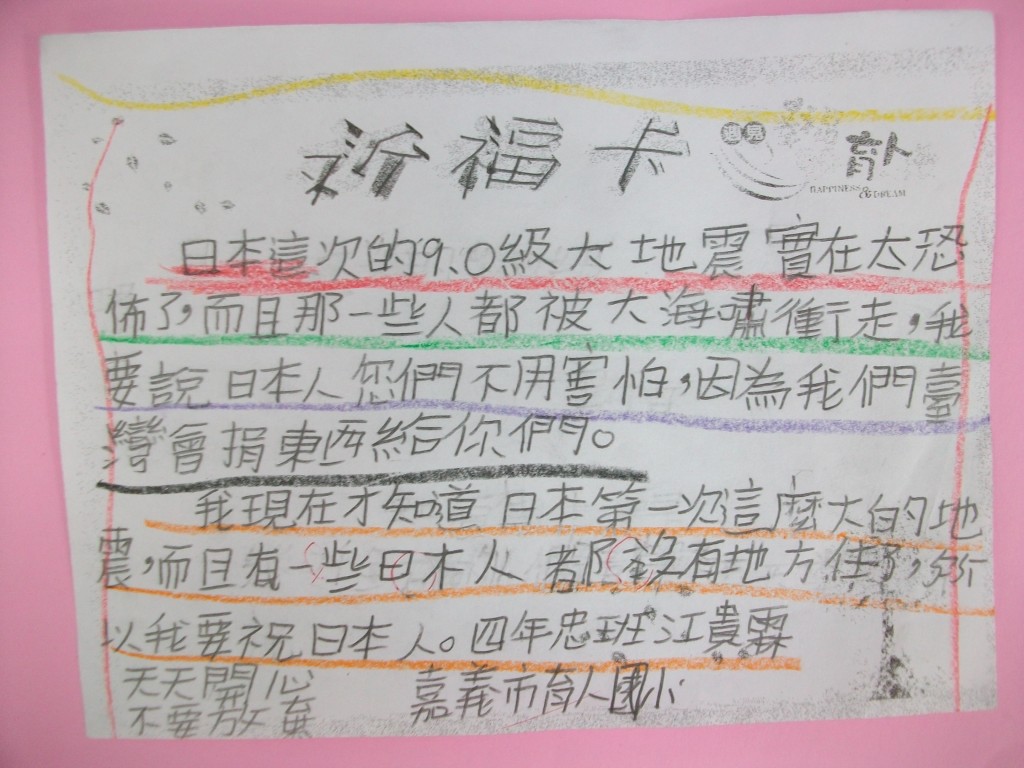 祈福卡
遇見
育人
HAPPINESS & DREAM
日本這次的9.0級大地震實在太恐
佈了,而且那一些人都被大海嘯衝走,我
要說日本人您們不用害怕,因為我們臺
灣會捐東西給你們。
我現在才知道日本第一次這麼大的地
震,而且有一些日本人都沒有地方住了,所
以我要祝日本人。四年忠班江貴霖
天天開心
不要放棄
嘉義市育人國小